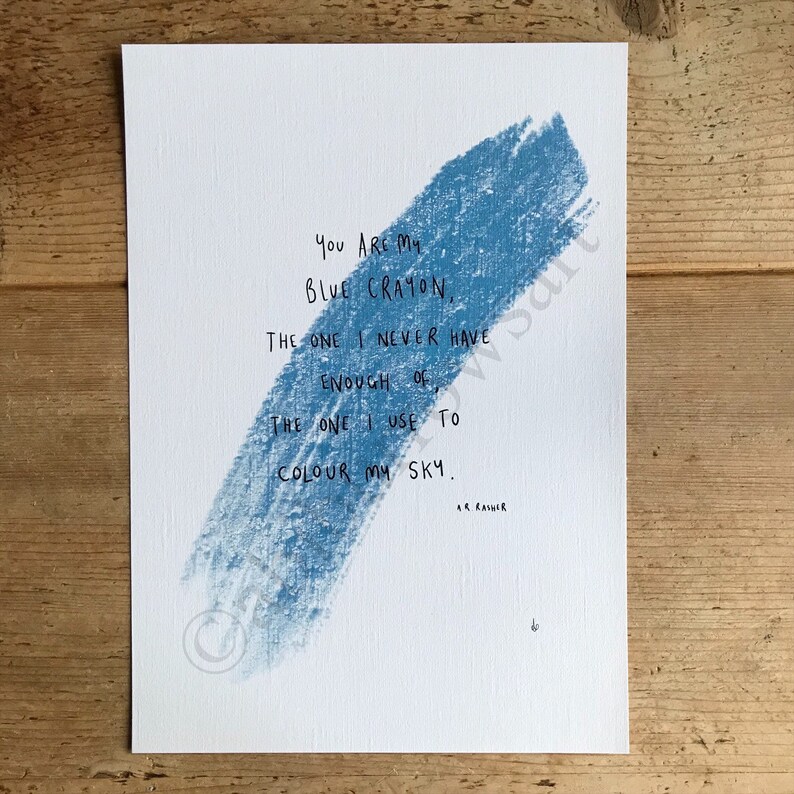 YOU ARE MY
BLUE CRAYON,
THE ONE I NEVER HAVE
ENOUGH OF,
THE ONE I USE TO
COLOUR MY SKY.
A.R. RASHER